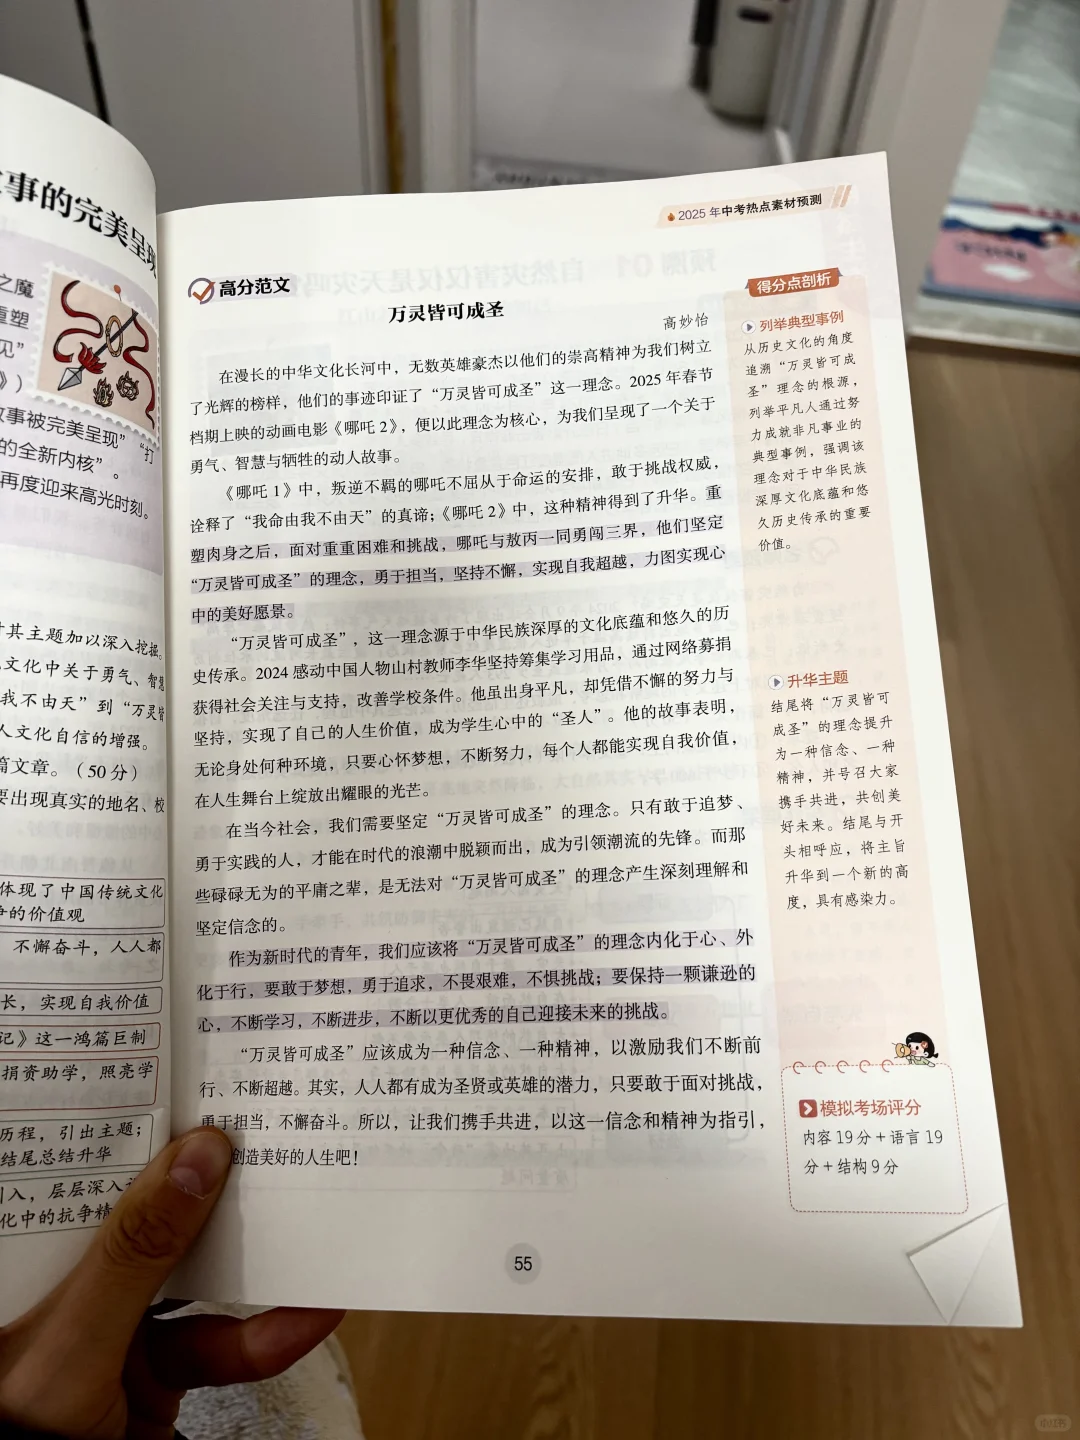 事的完美呈现
之魔
重塑
见”
》)
故事被完美呈现” “打
的全新内核”。
再度迎来高光时刻。
对其主题加以深入挖掘。
文化中关于勇气、智慧
我不由天”到“万灵皆
人文化自信的增强。
篇文章。(50分)
要出现真实的地名、校
体现了中国传统文化
争的价值观
不懈奋斗，人人都
长，实现自我价值
记》这一鸿篇巨制
捐资助学，照亮学
历程，引出主题；
结尾总结升华
引入，层层深入
化中的抗争精
2025年中考热点素材预测
高分范文
万灵皆可成圣
高妙怡
在漫长的中华文化长河中，无数英雄豪杰以他们的崇高精神为我们树立
了光辉的榜样，他们的事迹印证了“万灵皆可成圣”这一理念。2025年春节
档期上映的动画电影《哪吒2》，便以此理念为核心，为我们呈现了一个关于
勇气、智慧与牺牲的动人故事。
《哪吒1》中，叛逆不羁的哪吒不屈从于命运的安排，敢于挑战权威，
诠释了“我命由我不由天”的真谛；《哪吒2》中，这种精神得到了升华。重
塑肉身之后，面对重重困难和挑战，哪吒与敖丙一同勇闯三界，他们坚定
“万灵皆可成圣”的理念，勇于担当，坚持不懈，实现自我超越，力图实现心
中的美好愿景。
“万灵皆可成圣”，这一理念源于中华民族深厚的文化底蕴和悠久的历
史传承。2024感动中国人物山村教师李华坚持筹集学习用品，通过网络募捐
获得社会关注与支持，改善学校条件。他虽出身平凡，却凭借不懈的努力与
坚持，实现了自己的人生价值，成为学生心中的“圣人”。他的故事表明，
无论身处何种环境，只要心怀梦想，不断努力，每个人都能实现自我价值，
在人生舞台上绽放出耀眼的光芒。
在当今社会，我们需要坚定“万灵皆可成圣”的理念。只有敢于追梦、
勇于实践的人，才能在时代的浪潮中脱颖而出，成为引领潮流的先锋。而那
些碌碌无为的平庸之辈，是无法对“万灵皆可成圣”的理念产生深刻理解和
坚定信念的。
作为新时代的青年，我们应该将“万灵皆可成圣”的理念内化于心、外
化于行，要敢于梦想，勇于追求，不畏艰难，不惧挑战；要保持一颗谦逊的
心，不断学习，不断进步，不断以更优秀的自己迎接未来的挑战。
“万灵皆可成圣”应该成为一种信念、一种精神，以激励我们不断前
行、不断超越。其实，人人都有成为圣贤或英雄的潜力，只要敢于面对挑战，
勇于担当，不懈奋斗。所以，让我们携手共进，以这一信念和精神为指引，
创造美好的人生吧！
得分点剖析
列举典型事例
从历史文化的角度
追溯“万灵皆可成
圣”理念的根源，
列举平凡人通过努
力成就非凡事业的
典型事例，强调该
理念对于中华民族
深厚文化底蕴和悠
久历史传承的重要
价值。
升华主题
结尾将“万灵皆可
成圣”的理念提升
为一种信念、一种
精神，并号召大家
携手共进，共创美
好未来。结尾与开
头相呼应，将主旨
升华到一个新的高
度，具有感染力。
模拟考场评分
内容19分+语言19
分+结构9分
55
小红书